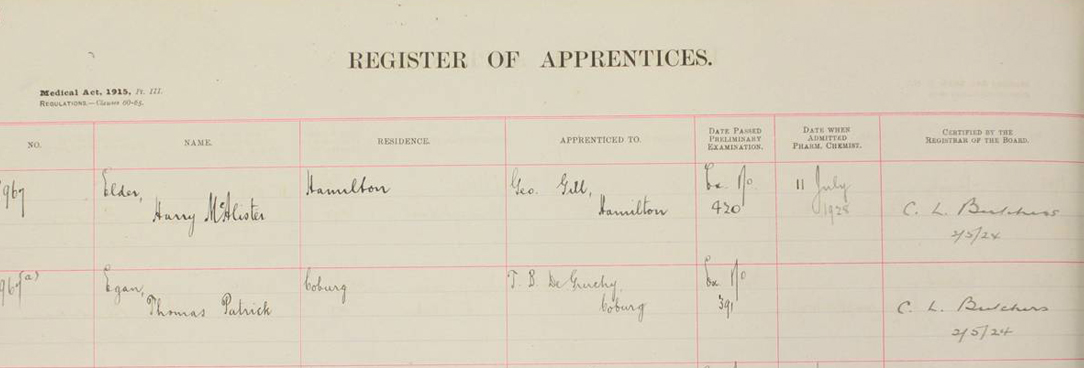 REGISTER OF APPRENTICES.
Medical Act, 1915, Pt. III.
REGULATIONS.—Clauses 60-85.
NO.
NAME.
RESIDENCE.
APPRENTICED TO.
DATE PASSED
PRELIMINARY
EXAMINATION.
DATE WHEN
ADMITTED
PHARM. CHEMIST.
CERTIFIED BY THE
REGISTRAR OF THE BOARD.
967
Elder,
Harry McAlister
Hamilton
Geo. Gill,
Hamilton
Ex No.
420
11 July
1928
C. L. Butchers
2/5/24
967(a)
Egan,
Thomas Patrick
Coburg
T. B. De Gruchy.
Coburg
Ex No
391
C. L. Butchers
2/5/24